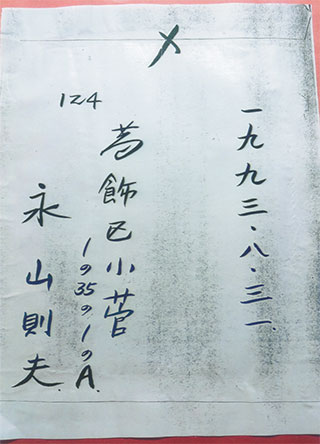 〆
一九九三・八・三一
124
葛飾区小菅
1の35の1のA.
永山則夫.